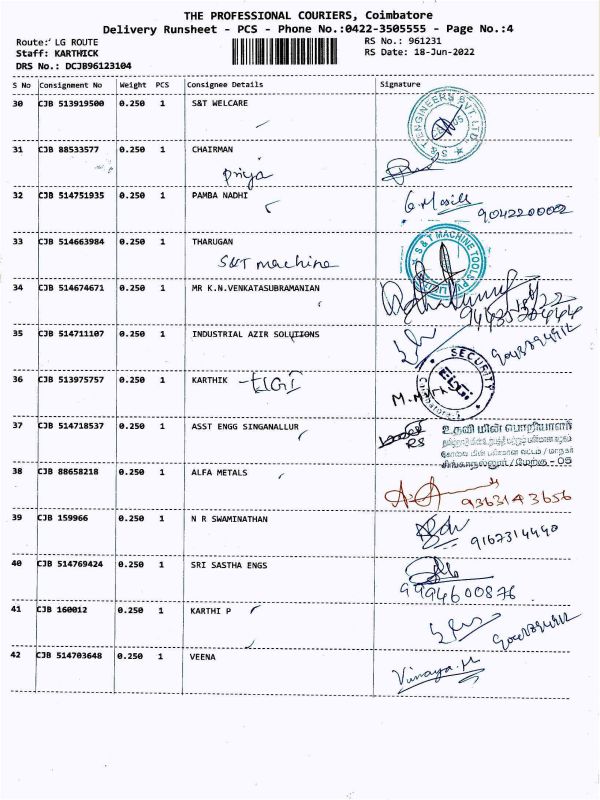 THE PROFESSIONAL COURIERS, Coimbatore
Delivery Runsheet - PCS - Phone No.:0422-3505555 - Page No.:4
Route: LG ROUTE
RS No.: 961231
Staff: KARTHICK
RS Date: 18-Jun-2022
DRS No.: DCJB96123104
S No Consignment No Weight PCS Consignee Details Signature
30 CJB 513919500 0.250 1 S&T WELCARE
31 CJB 88533577 0.250 1 CHAIRMAN
Priya
32 CJB 514751935 0.250 1 PAMBA NADHI
9042200002
33 CJB 514663984 0.250 1 THARUGAN
S&T machine
S&T MACHINE TOOLS
34 CJB 514674671 0.250 1 MR K.N.VENKATASUBRAMANIAN
35 CJB 514711107 0.250 1 INDUSTRIAL AZIR SOLUTIONS
36 CJB 513975757 0.250 1 KARTHIK
SECURITY
37 CJB 514718537 0.250 1 ASST ENGG SINGANALLUR
உதவி மின் பொறியாளர்
38 CJB 88658218 0.250 1 ALFA METALS
9363143656
39 CJB 159966 0.250 1 N R SWAMINATHAN
9167314440
40 CJB 514769424 0.250 1 SRI SASTHA ENGS
9994600876
41 CJB 160012 0.250 1 KARTHI P
42 CJB 514703648 0.250 1 VEENA
Vinaya.M